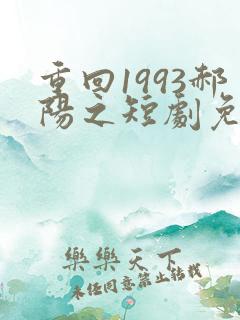 重回1993郝
陽之短劇免
樂樂天下
未经同意禁止转载